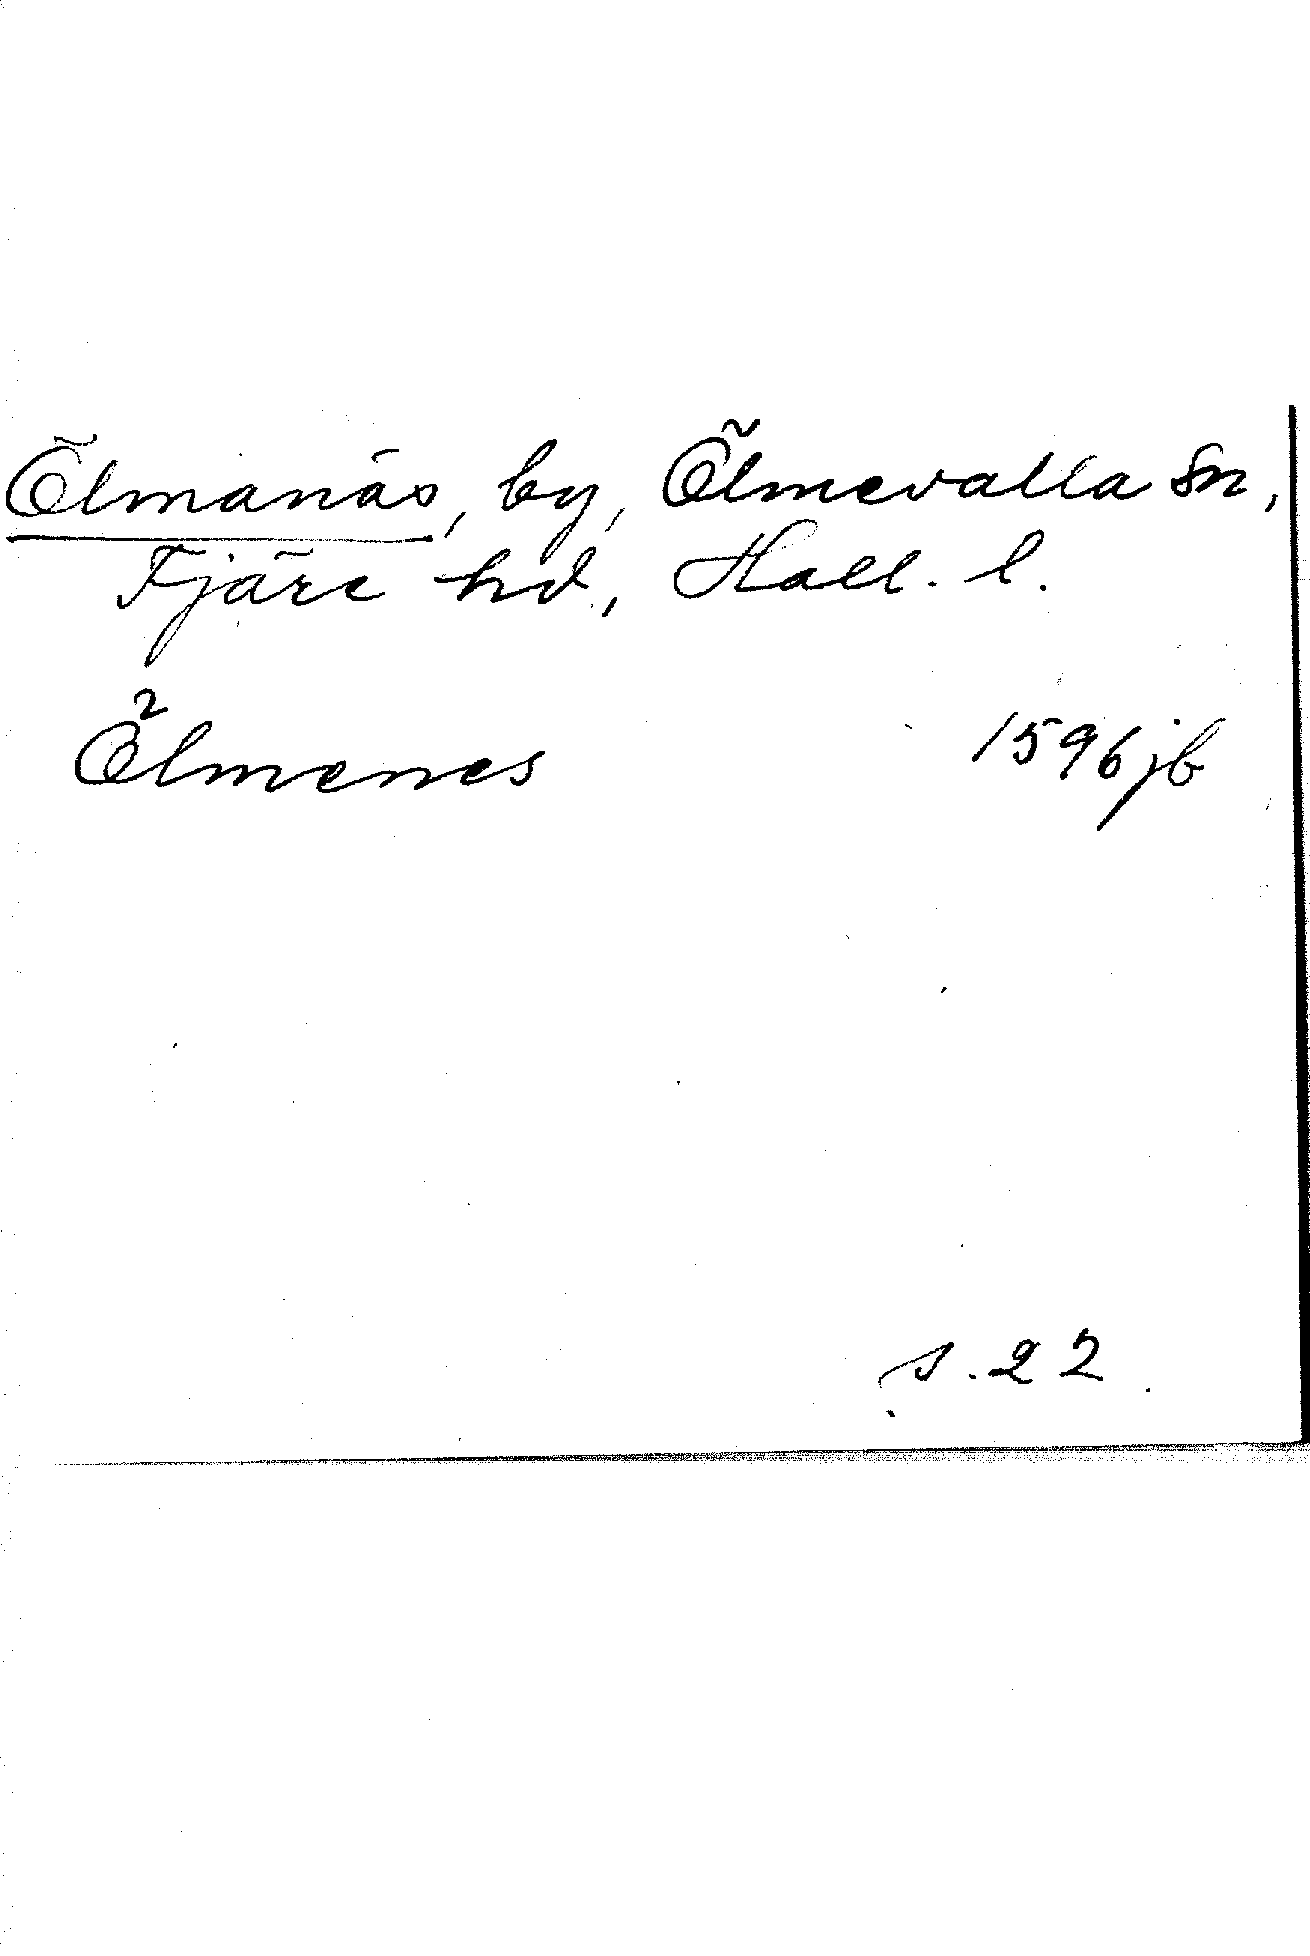 Ölmanäs, by, Ölmevalla sn,
Fjäre hd, Hall. l.
Ölmenes 1596 jb
s. 22